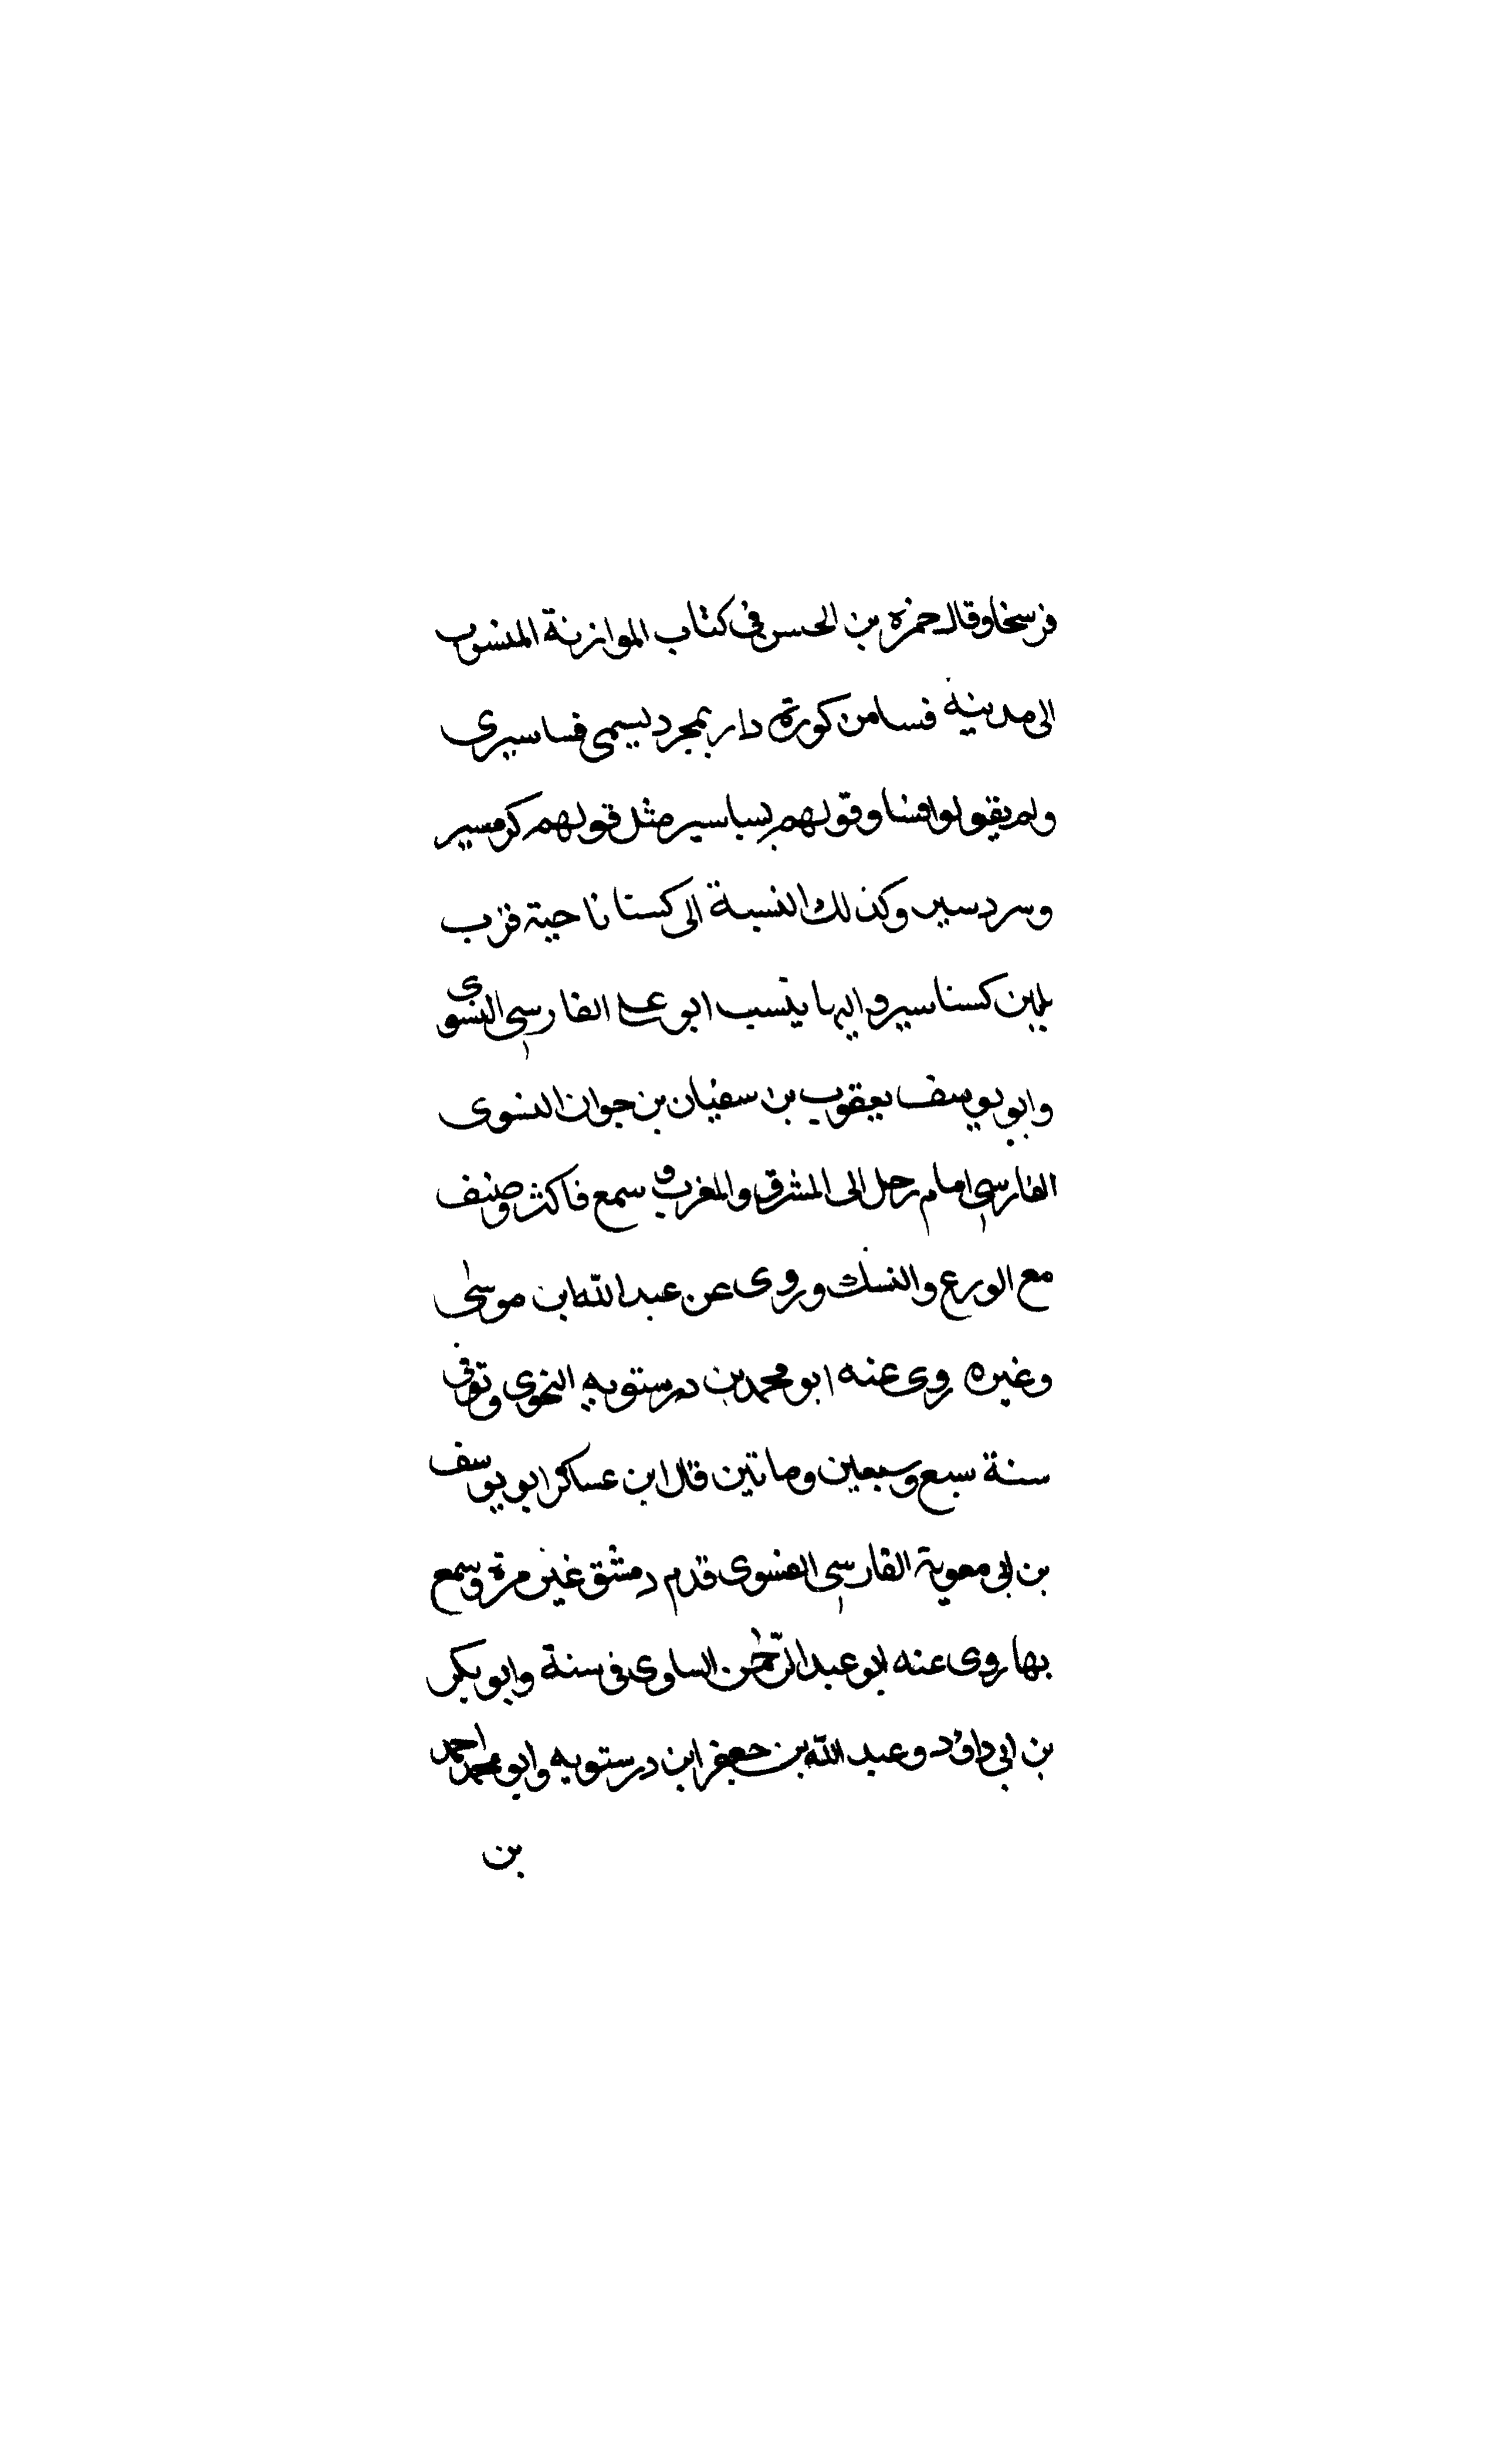 فرسخا وقال حمزة بن الحسن في كتاب الموازنة المنسوب
الى مدينة فسا من كورة دار بجرد ليسمى فساسيرى
ولم يقولوا فسا وقولهم بساسير مثل قولهم كرمسير
وسردسير وكذلك النسبة الى كسنا ناحية قرب
كسناسير واليها ينسب ابو على الفارسي النسوى
وابو يوسف يعقوب بن سفيان بن جوان النسوى
الفارسي امام رحل الى المشرق والمغرب و سمع فاكثر وصنف
مع الورع والنسك وروى عن عبد الله ابن موسى
وغيره روى عنه ابو محمد بن درستويه النحوى وتوفى
سنة سبع وسبعين وماتين قال ابن عساكر ابو يوسف
بن ابي معوية الفارسي الفسوى قدم دمشق غير مرة وسمع
بها روى عنه ابو عبد الرحمن الساوى فى سنة وابو بكر
بن ابي داؤد وعبد الله بن جعفر ابن درستويه وابو محمد احمد
بن